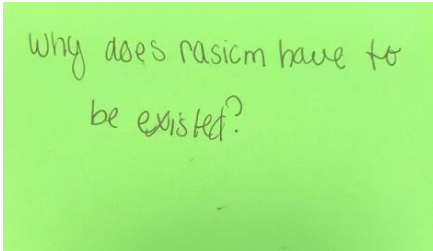 why does rasicm have to
be existed?